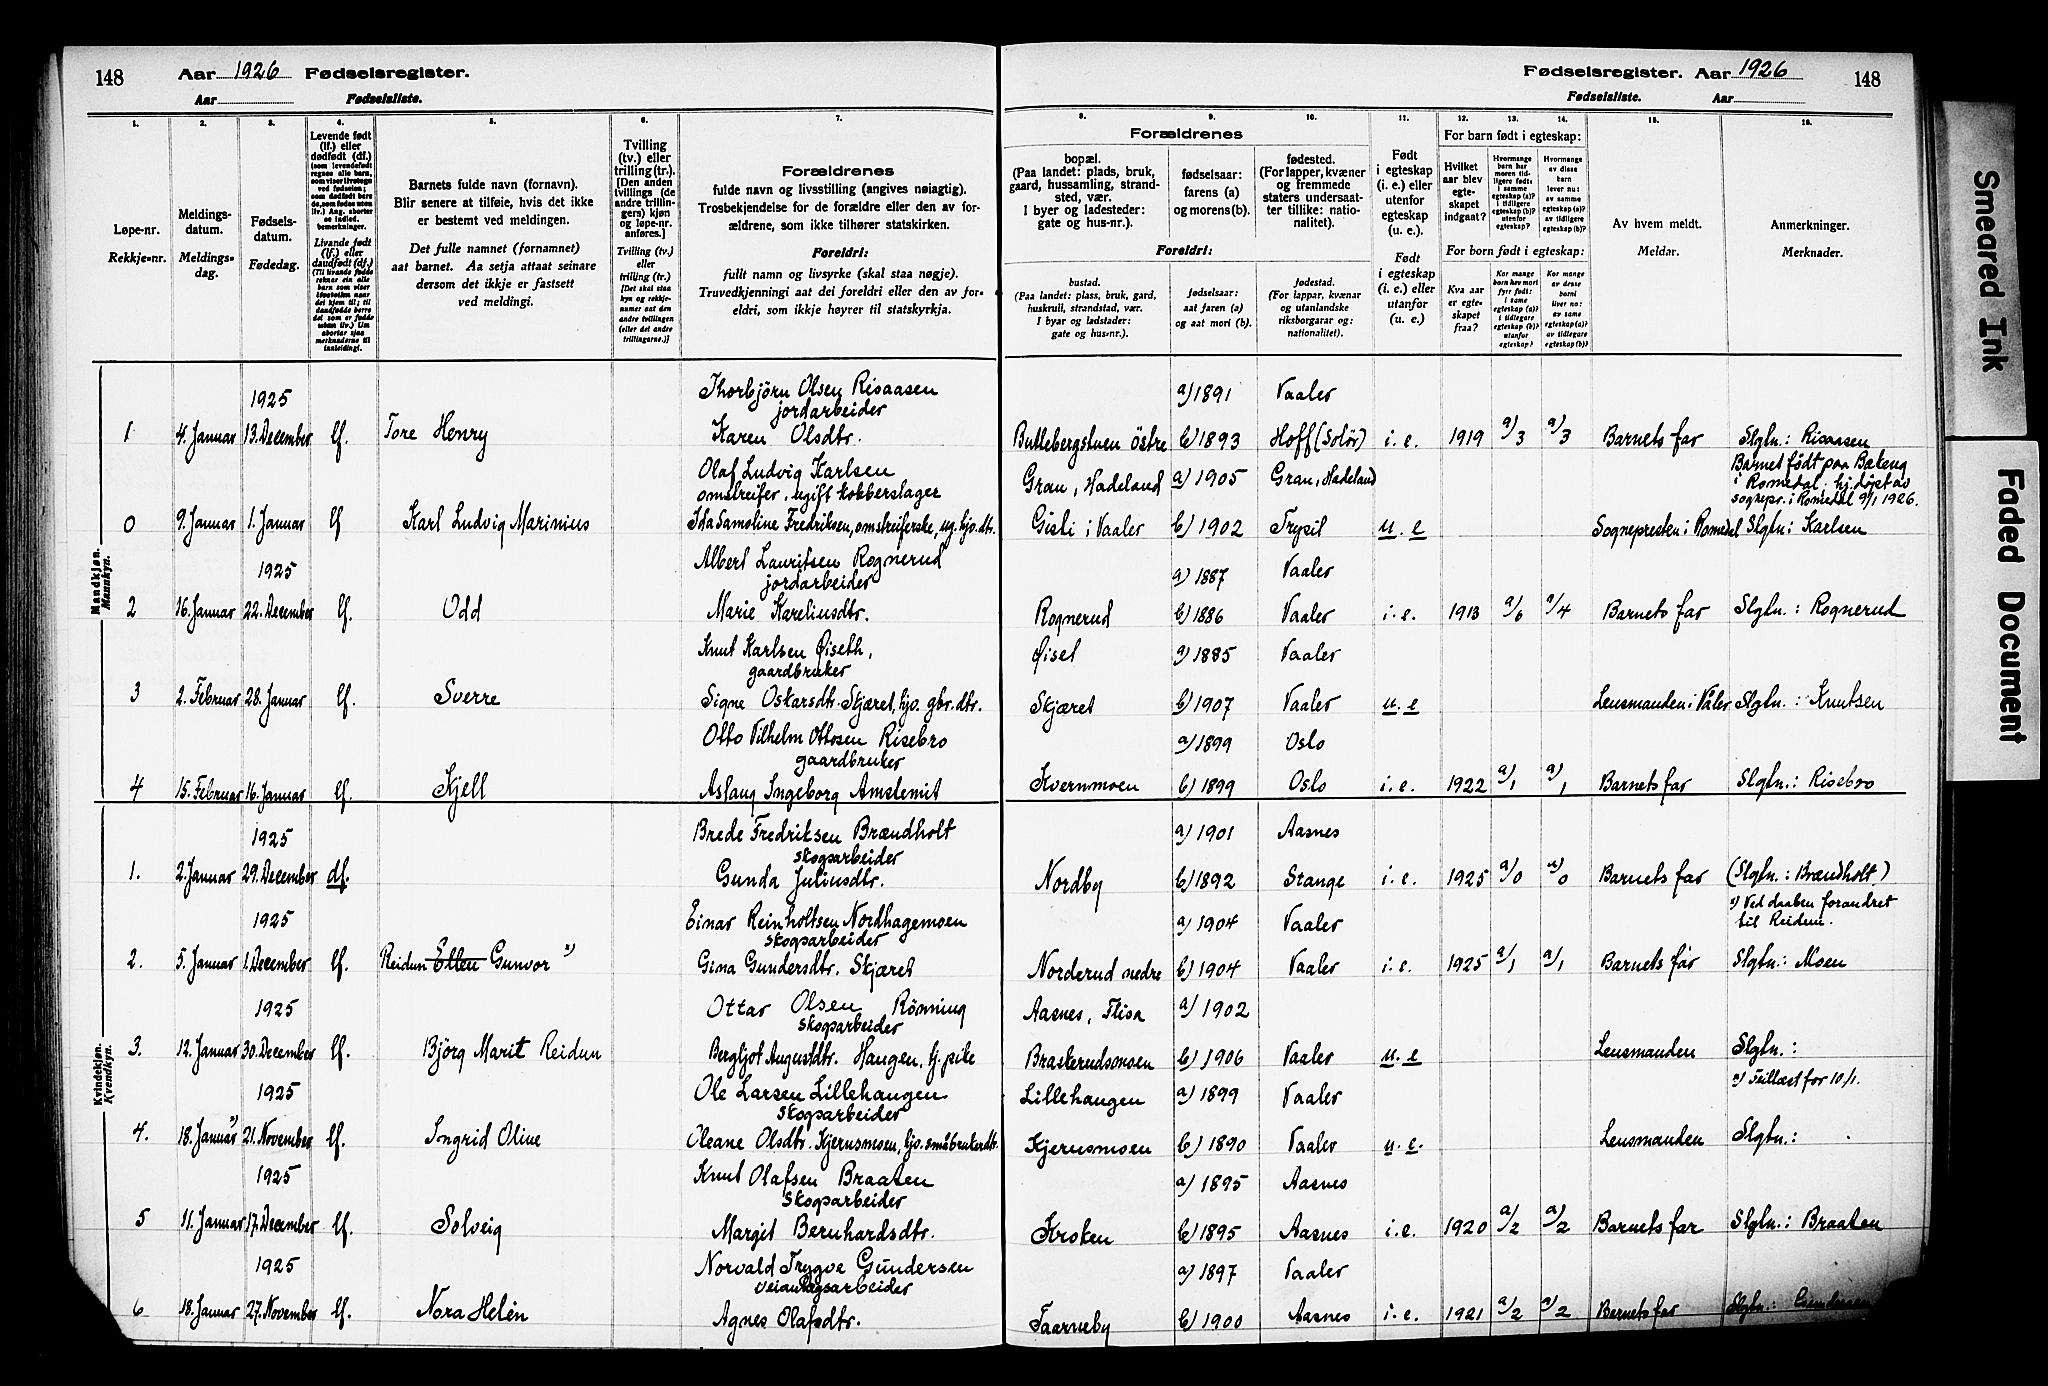 148 Aar 1926 Fødselsregister.
Aar Fødselsliste.
Fødselsregister. Aar 1926 148
Fødselsliste. Aar
1. 2. 3. 4. 5. 6. 7. 8. 9. 10. 11. 12. 13. 14. 15. 16.
Løpe-nr.
Rekkje-nr.
Meldings-
datum.
Meldings-
dag.
Fødsels-
datum.
Fødedag.
Levende født
(lf.) eller
dødfødt (df.)
Livande født
(lf.) eller
daudfødt (df.)
Barnets fulde navn (fornavn).
Blir senere at tilføie, hvis det ikke
er bestemt ved meldingen.
Det fulle namnet (fornamnet)
aat barnet. Aa setja attaat seinare
dersom det ikkje er fastsett
ved meldingi.
Tvilling
(tv.) eller
trilling (tr.).
[Den anden
tvillings (de
andre trillin-
gers) kjøn
og løpe-nr.
anføres.]
Tvilling (tv.)
eller
trilling (tr.)
Forældrenes
fulde navn og livsstilling (angives nøiagtig).
Trosbekjendelse for de forældre eller den av for-
ældrene, som ikke tilhører statskirken.
Foreldri:
fullt namn og livsyrke (skal staa nøgje).
Truvedkjenningi aat dei foreldri eller den av for-
eldri, som ikkje høyrer til statskyrkja.
Forældrenes
bopæl.
(Paa landet: plads, bruk,
gaard, hussamling, strand-
sted, vær.
I byer og ladesteder:
gate og hus-nr.).
fødselsaar:
farens (a)
og morens (b).
fødested.
(For lapper, kvæner
og fremmede
staters undersaat-
ter tillike: natio-
nalitet).
Foreldri:
bustad.
(Paa landet: plass, bruk, gard,
huskrull, strandstad, vær.
I byar og ladstader:
gate og hus-nr.).
fødselsaar:
aat faren (a)
og aat mori (b).
fødestad.
(For lappar, kvænar
og utanlandske
riksborgarar og:
nationalitet).
Født
i egteskap
(i. e.) eller
utenfor
egteskap
(u. e.).
Født
i egteskap
(i. e.) eller
utanfor
egteskap
(u. e.)
For barn født i egteskap:
Hvilket
aar blev
egte-
skapet
indgaat?
For barn født i egteskap:
Kva aar
er egte-
skapet
fraa?
Av hvem meldt.
Meldar.
Anmerkninger.
Merknader.
Mandkjøn.
Mannkyn.
1925 Thorbjörn Olsen Risaasen a) 1891 Vaaler
jordarbeider
1 4. Januar 13. December lf. Tore Henry Karen Olsdtr. Bullebergstuen östre b) 1893 Hoff (Solör) i. e. 1919 a/3 a/3 Barnets far Slgtn.: Risaasen
Olaf Ludvig Karlsen Gran, Hadeland a) 1905 Gran, Hadeland Barnet født paa Bakeng
omstreifer, ugift kobberslager i Romedal. hj.døpt av
sognepr. i Romedal 9/1 1926.
0 9. Januar 1. Januar lf Karl Ludvig Marinius Ida Samoline Fredriksen, omstreiferske, ug. hjv. dtr. Gisli i Vaaler b) 1902 Trysil u. e Sognepresten i Romedal Slgtn: Karlsen
1925 Albert Lauritsen Rognerud a) 1887 Vaaler
jordarbeider
2 16. Januar 22. December lf. Odd Marie Kareliusdtr. Rognerud b) 1886 Vaaler i. e. 1913 a/6 a/4 Barnets far Slgtn.: Rognerud
Knut Karlsen Øiseth, Øiset a) 1885 Vaaler
gaardbruker
3 2. Februar 28. Januar lf. Sverre Signe Oskarsdtr. Skjæret, hjv. gbr. dtr. Skjæret b) 1907 Vaaler u. e Lensmanden i Våler Slgtn.: Knutsen
Otto Vilhelm Ottosen Risebro a) 1899 Oslo
gaardbruker
4 15. Februar 16. Januar lf. Kjell Aslaug Ingeborg Amslemit Kvernmoen b) 1899 Oslo i. e. 1922 a/1 a/1 Barnets far Slgtn.: Risebro
Kvindekjøn.
Kvendkyn.
1925 Brede Fredriksen Brændholt a) 1901 Aasnes
skogsarbeider
1. 2. Januar 29. December df. Gunda Juliusdtr. Nordby b) 1892 Stange i. e. 1925 a/0 a/0 Barnets far (Slgtn.: Brændholt)
1925 Einar Reinholtsen Nordhagemoen a) 1904 Vaaler x) Ved daaben forandret
skogsarbeider til Reidun.
2. 5. Januar 1. December lf. Reidun Ellen Gunvor x) Gina Gundersdtr. Skjæret Norderud nedre b) 1904 Vaaler i. e. 1925 a/1 a/1 Barnets far Slgtn.: Moen
1925 Ottar Olsen Rönning Aasnes, Flisa a) 1902
skogsarbeider
3. 12. Januar 30. December lf. Björg Marit Reidun Bergljot Augustdtr. Haugen, tj. pike Braskerudsmoen b) 1906 Vaaler u. e Lensmanden Slgtn.:
1925 Ole Larsen Lillehaugen Lillehaugen a) 1899 Vaaler x) Feillæst for 10/1.
skogsarbeider
4. 18. Januar x) 21. November lf. Ingrid Oline Oleane Olsdtr. Kjernsmoen, hjv. småbrukerdtr. Kjernsmoen b) 1890 Vaaler u. e. Lensmanden Slgtn.:
1925 Knut Olafsen Braaten a) 1895 Aasnes
skogsarbeider
5 11. Januar 17. December lf. Solveig Margit Bernhardsdtr. Kroken b) 1895 Aasnes i. e. 1920 a/2 a/2 Barnets far Slgtn.: Braaten
1925 Norvald Trygve Gundersen a) 1897 Vaaler
veianlægsarbeider
6 18. Januar 27. November lf. Nora Helén Agnes Olafsdtr. Taarneby b) 1900 Aasnes i. e. 1921 a/2 a/2 Barnets far Slgtn.: Gundersen
Smeared Ink
Faded Document